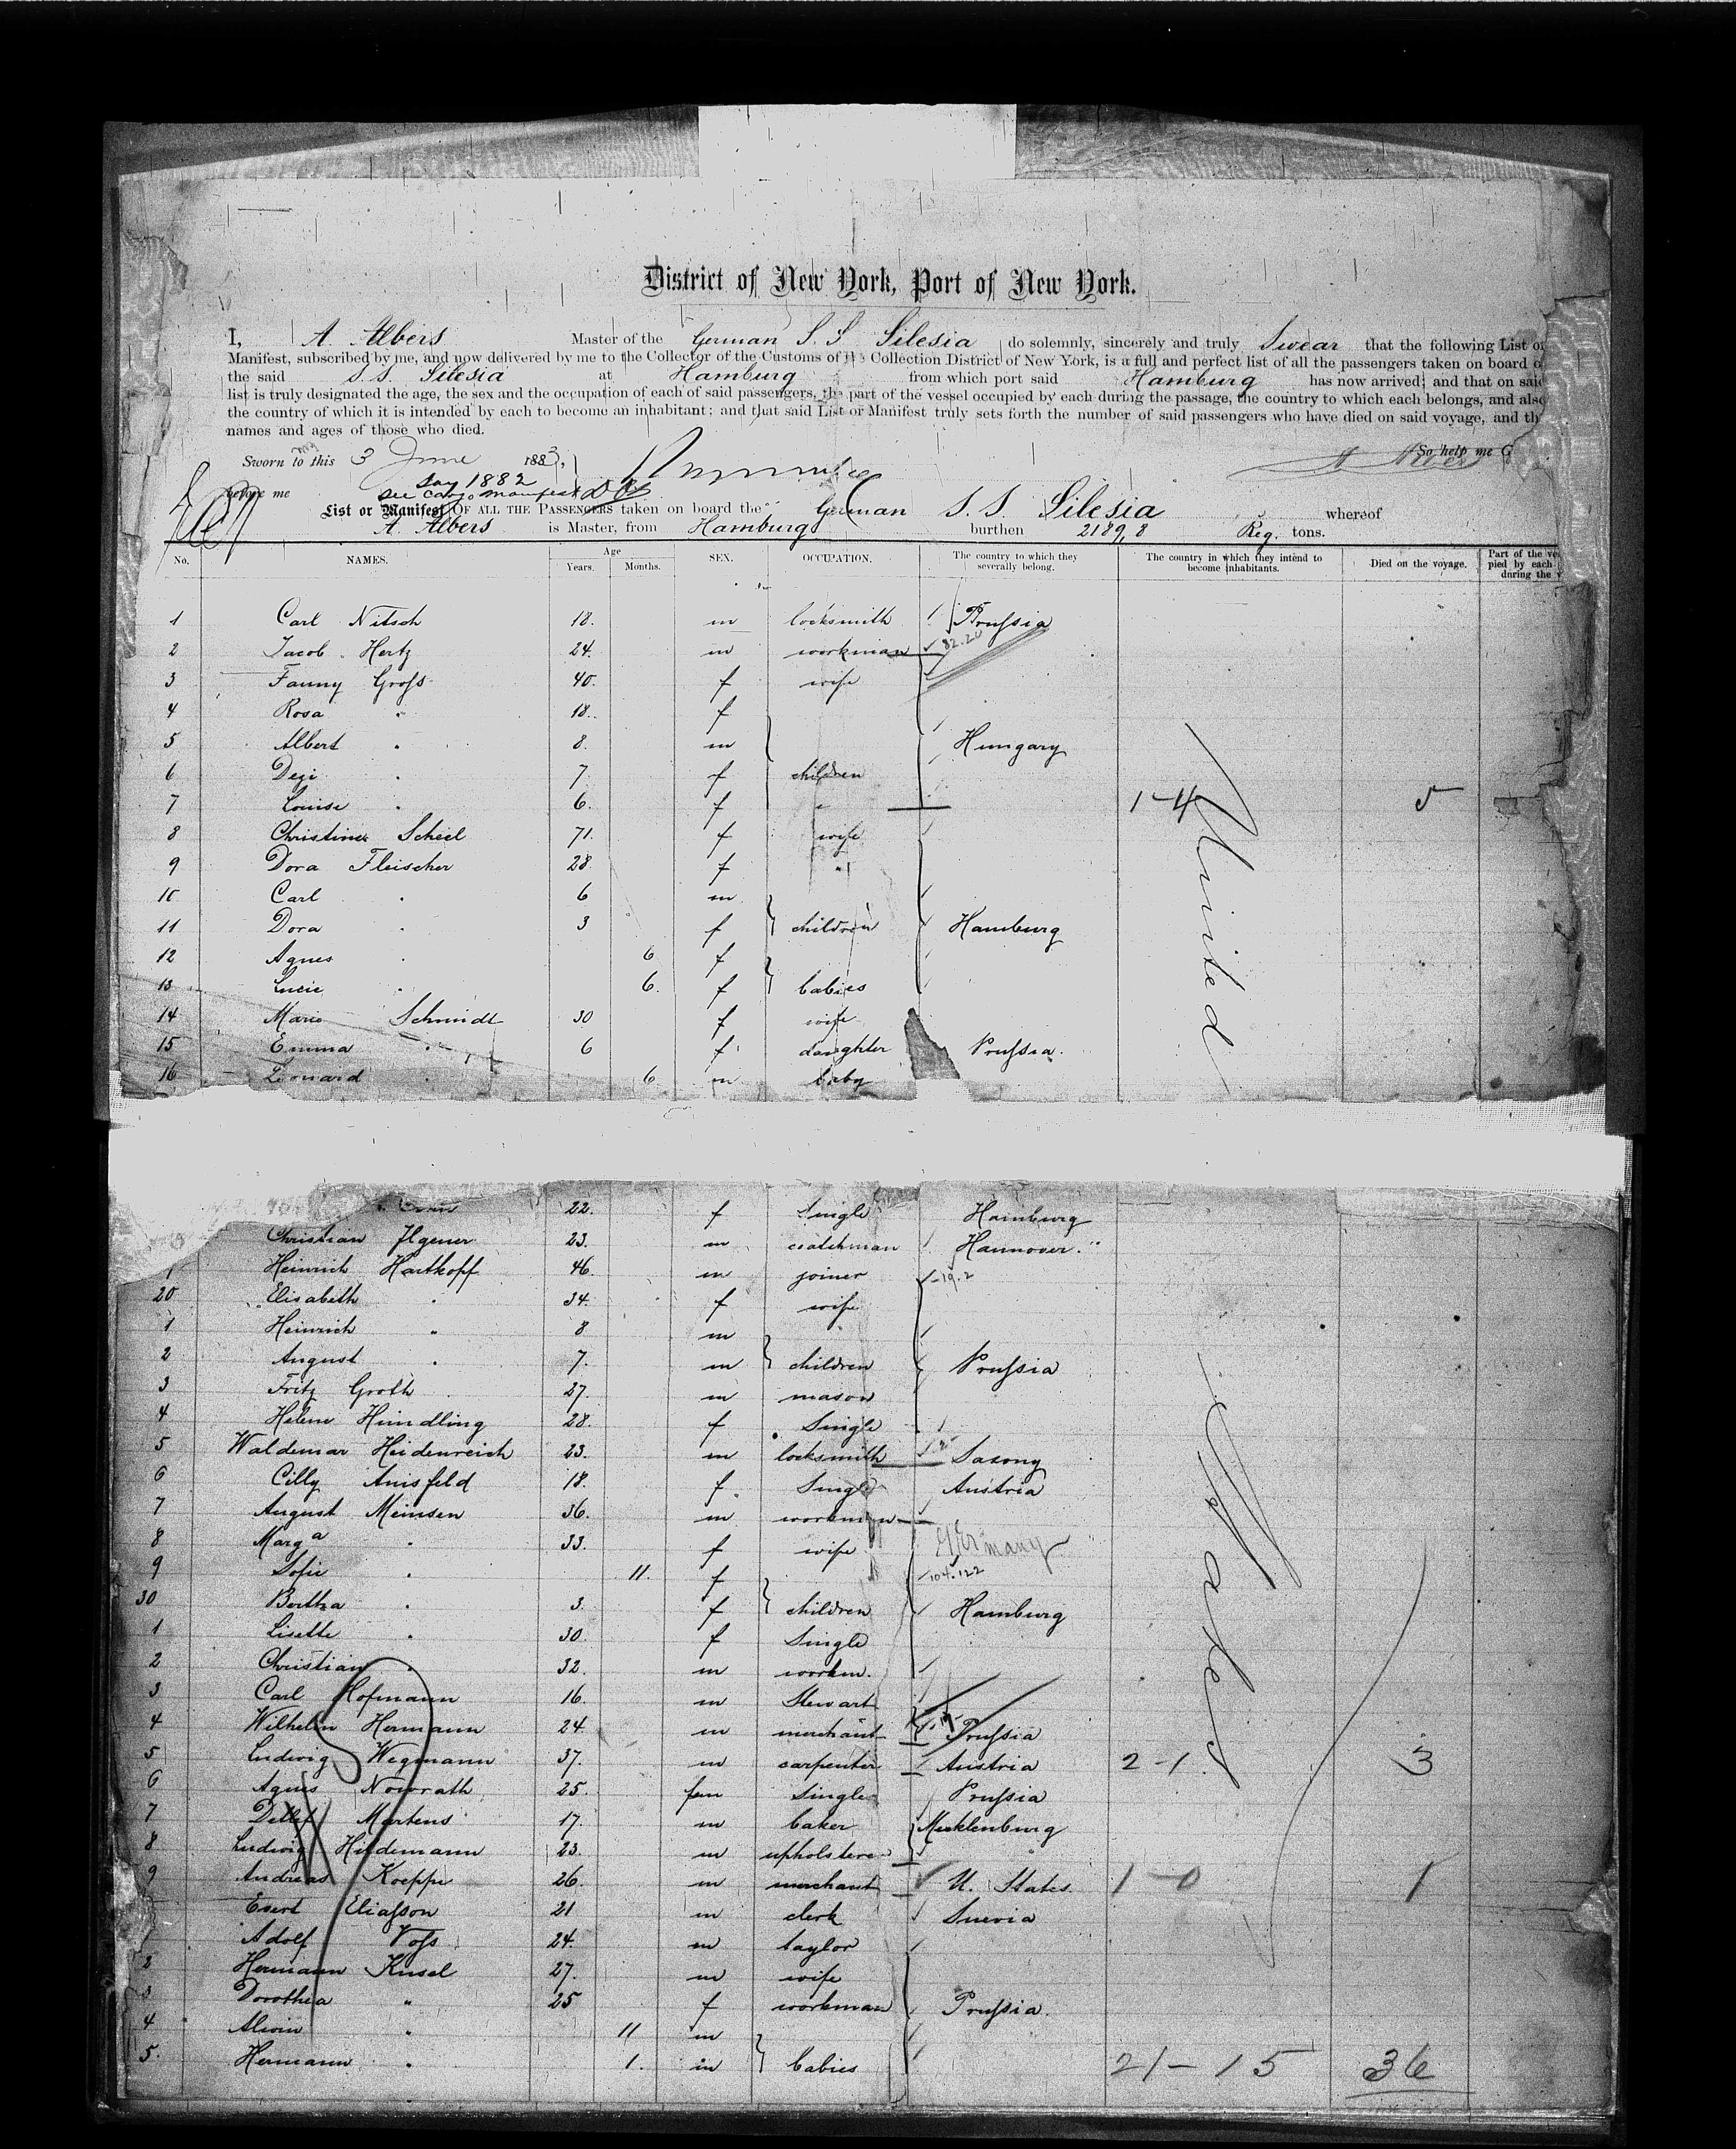 District of New York, Port of New York.
I, A. Albers Master of the German S. S. Silesia do solemnly, sincerely and truly Swear that the following List or
Manifest, subscribed by me, and now delivered by me to the Collector of the Customs of the Collection District of New York, is a full and perfect list of all the passengers taken on board o
the said S.S. Silesia at Hamburg from which port said Hamburg has now arrived; and that on said
list is truly designated the age, the sex and the occupation of each of said passengers, the part of the vessel occupied by each during the passage, the country to which each belongs, and also
the country of which it is intended by each to become an inhabitant; and that said List or Manifest truly sets forth the number of said passengers who have died on said voyage, and th
names and ages of those who died.
So help me G
Sworn to this 3 June 1883,
A Albers
Say 1882
before me see cargo manifest
List or Manifest OF ALL THE PASSENGERS taken on board the German S. S. Silesia whereof
A. Albers is Master, from Hamburg burthen 2189,8 Reg. tons.
No. NAMES. Age Years. Months. SEX. OCCUPATION. The country to which they severally belong. The country in which they intend to become inhabitants. Died on the voyage. Part of the ve pied by each during the v
1 Carl Nitsch 18. m locksmith Prussia
2 Jacob Hertz 24. m workman 82.20
3 Fanny Gross 40. f wife
4 Rosa " 18. f
5 Albert " 8. m Hungary
6 Dezi " 7 f children
7 Louise " 6. f " 1-4 5
8 Christine Scheel 71. f wife
9 Dora Fleischer 28. f "
10 Carl " 6 m
11 Dora " 3 f children Hamburg
12 Agnes " 6 f
13 Lucie " 6. f babies
14 Marie Schmidt 30 f wife
15 Emma " 6 f daughter Prussia.
16 Leonard " 6 m baby
United
22. f Single Hamburg
Christian Ilgener 23. m coatchman Hannover.
Heinrich Hartkopf 46. m joiner 19.2
20 Elisabeth " 34. f wife
1 Heinrich " 8 m
2 August " 7. m children Prussia
3 Fritz Groth 27. m mason
4 Helene Hindling 28. f Single
5 Waldemar Heidenreich 23. m locksmith Saxony
6 Cilly Anisfeld 18. f Single Austria
7 August Meinsen 36. m workman
8 Marga " 33. f wife Germany
9 Sofie " 11. f 104.122
30 Bertha " 3. f children Hamburg
1 Lisette " 30. f Single
2 Christian " 32. m workm.
3 Carl Hofmann 16. m Stewart
4 Wilhelm Hermann 24 m merchant Prussia
5 Ludwig Wegmann 37. m carpenter Austria 2-1. 3
6 Agnes Nowrath 25. fem Single Prussia
7 Detlef Martens 17. m baker Mecklenburg
8 Ludwig Hildemann 23. m upholsterer
9 Andreas Koeppe 26. m merchant U. States. 1-0 1
Evert Eliasson 21 m clerk Suevia
1 Adolf Voss 24. m taylor
2 Hermann Kusel 27. m wife
3 Dorothea " 25 f workman Prussia.
4 Alwin " 11 m
5. Hermann " 1. m babies 21-15 36
States